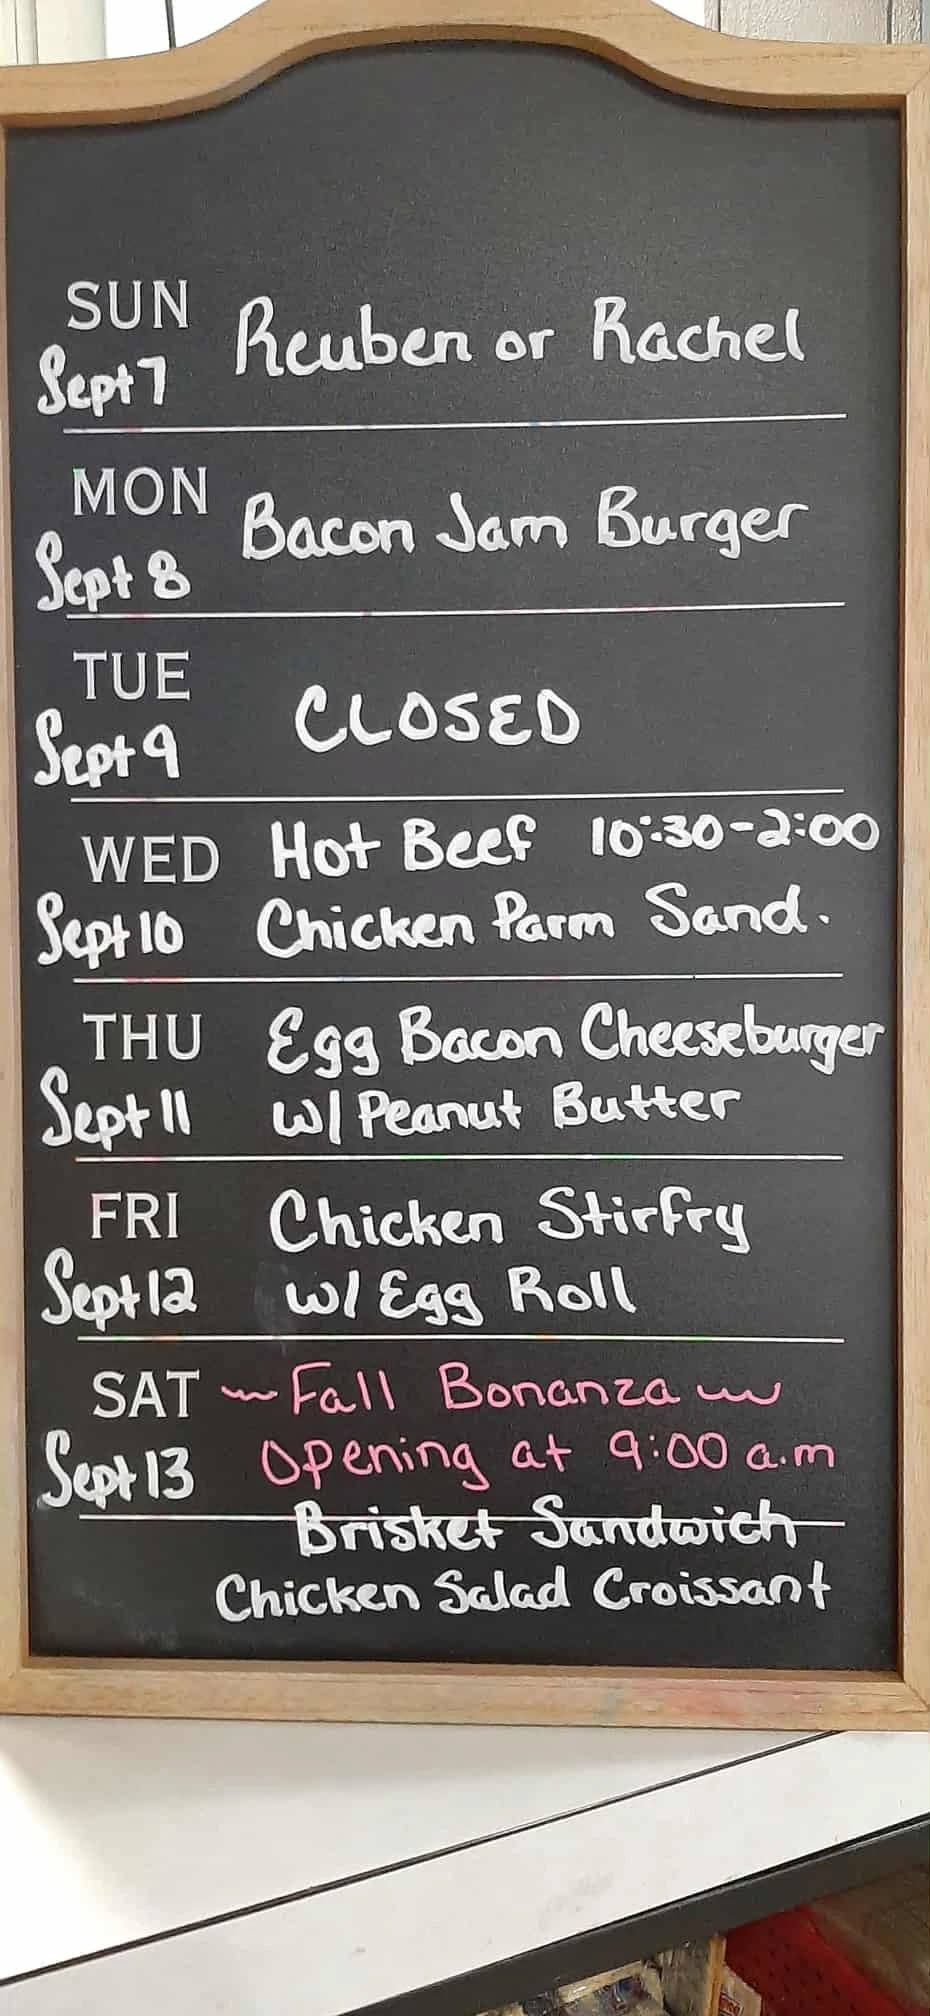 SUN
Sept 7
Reuben or Rachel
MON
Sept 8
Bacon Jam Burger
TUE
Sept 9
CLOSED
WED
Sept 10
Hot Beef 10:30-2:00
Chicken Parm Sand.
THU
Sept 11
Egg Bacon Cheeseburger
w/ Peanut Butter
FRI
Sept 12
Chicken Stirfry
w/ Egg Roll
SAT
Sept 13
~Fall Bonanza~
Opening at 9:00 a.m
Brisket Sandwich
Chicken Salad Croissant